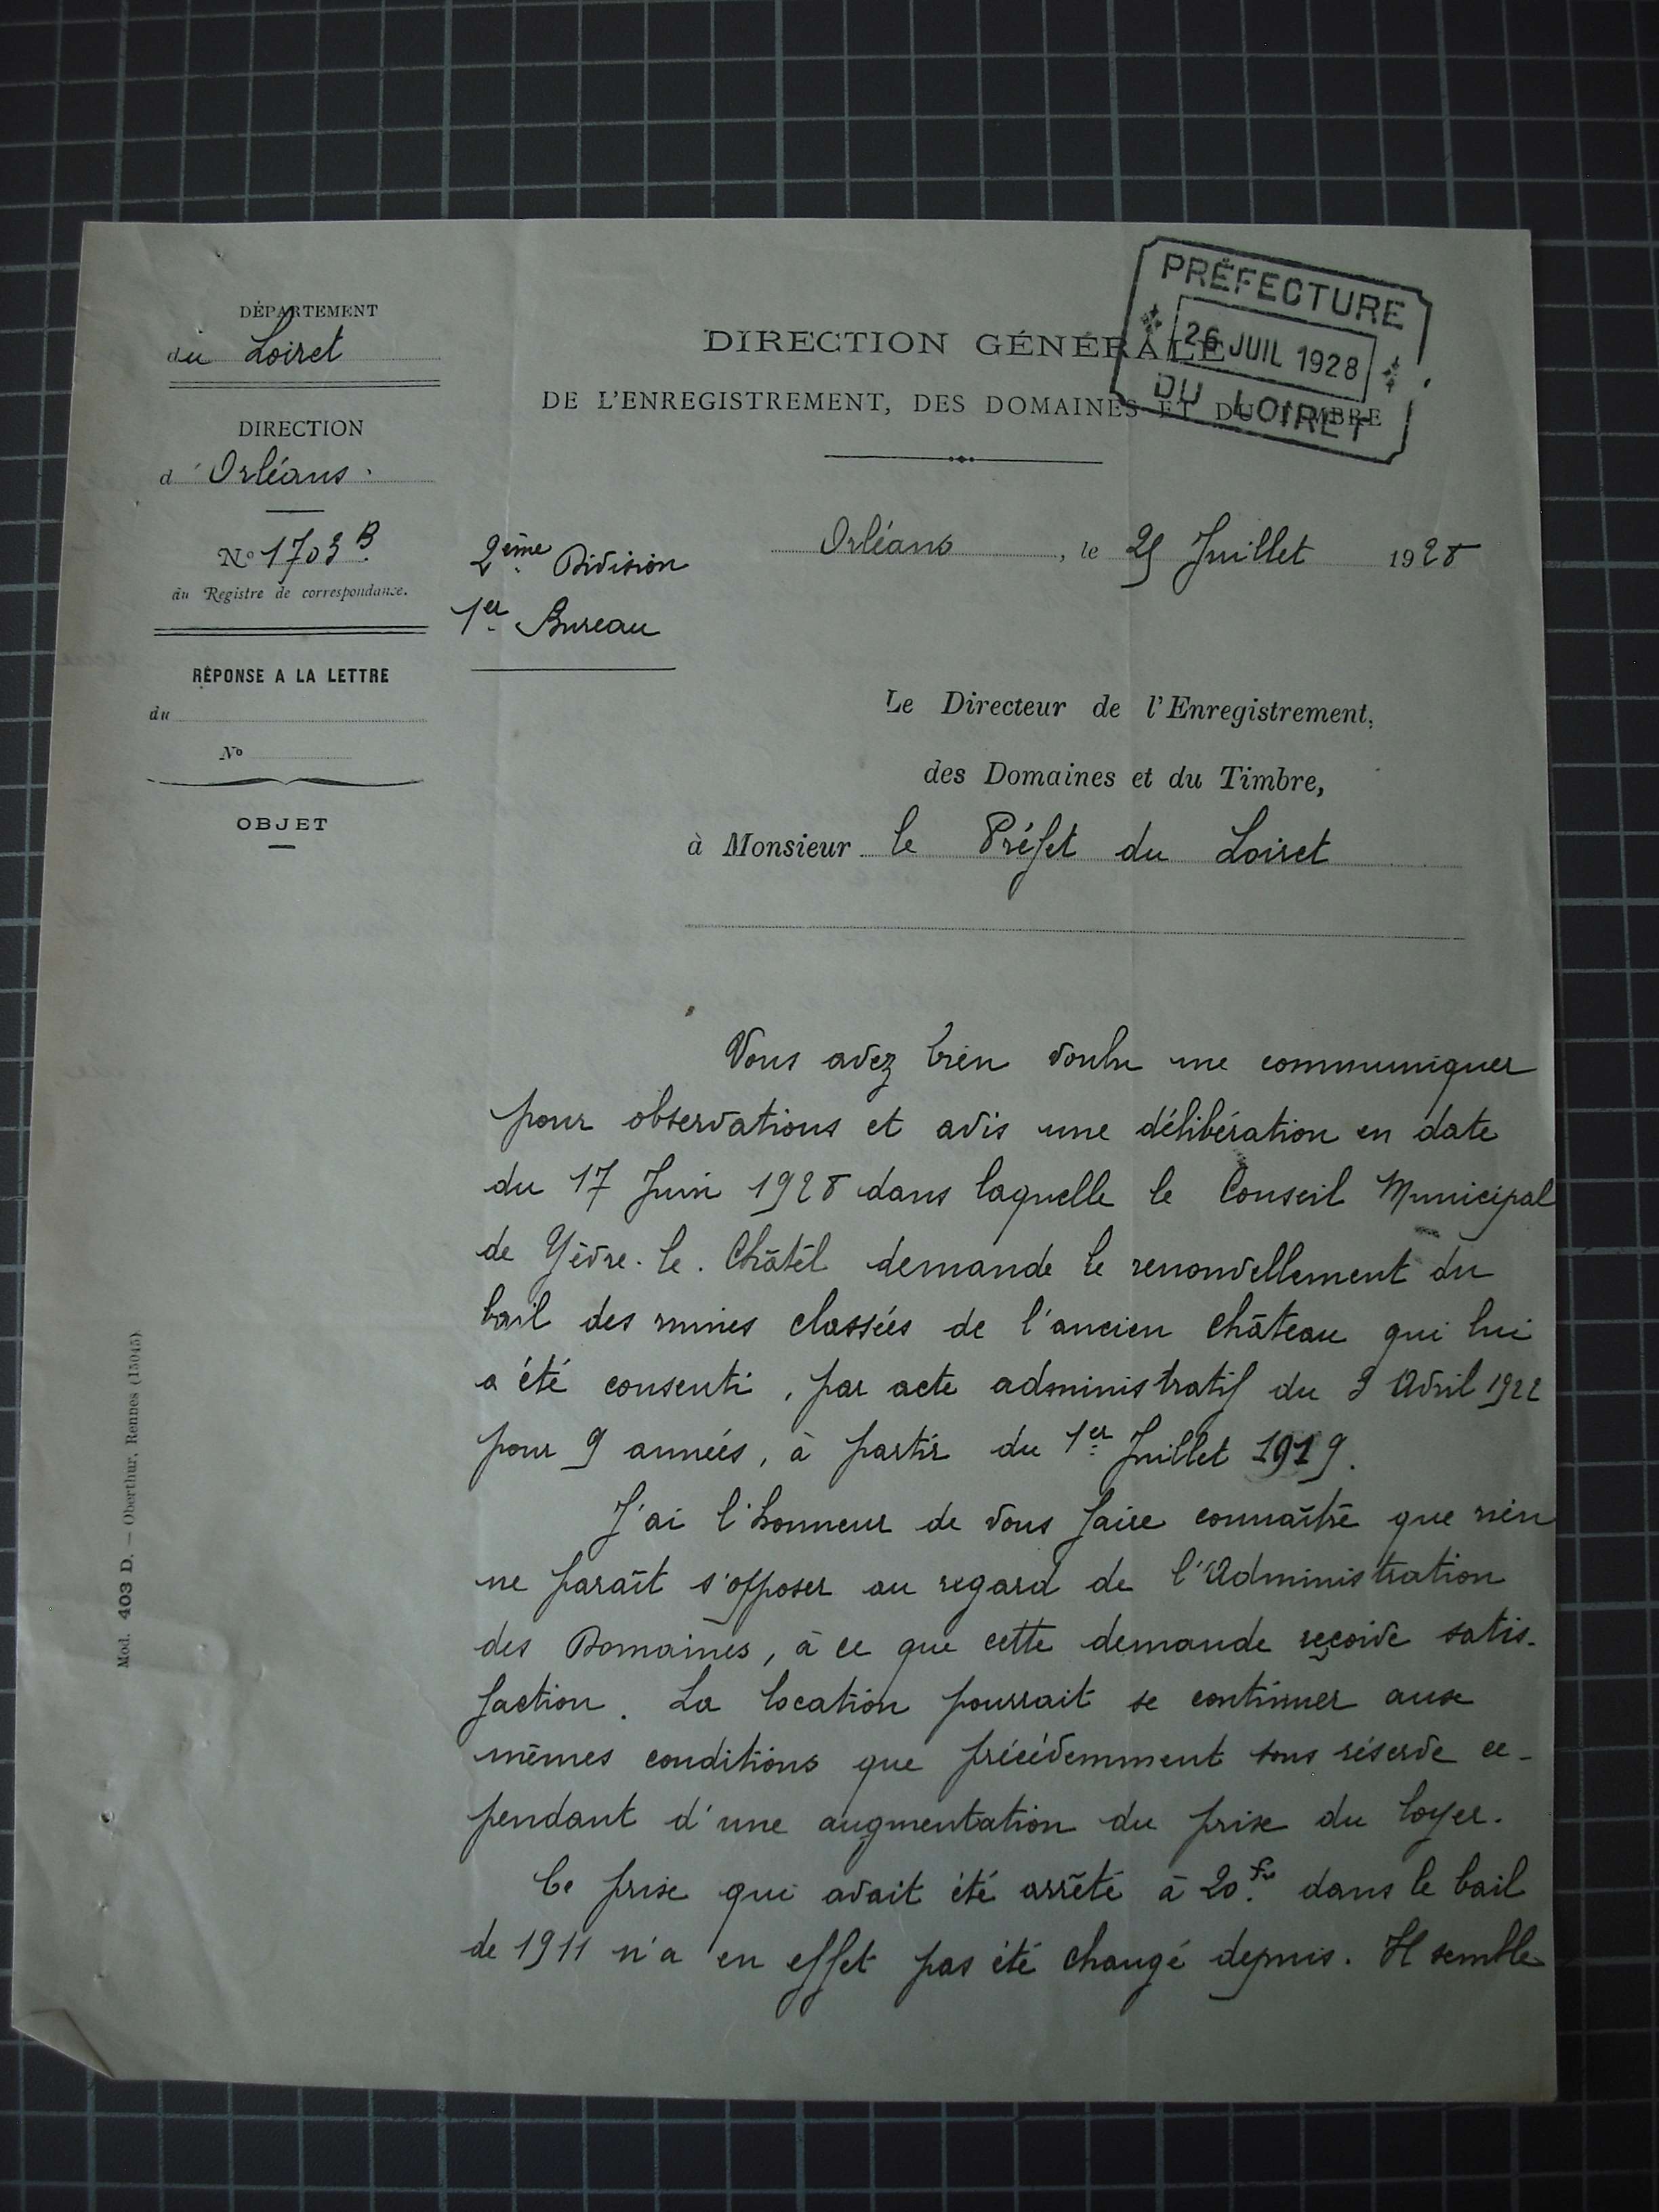 DÉPARTEMENT
du Loiret
DIRECTION
d'Orléans.
N° 1703 B.
au Registre de correspondance.
RÉPONSE A LA LETTRE
du
N°
OBJET
2ème Division
1er Bureau
PRÉFECTURE
26 JUIL 1928
DU LOIRET
DIRECTION GÉNÉRALE
DE L'ENREGISTREMENT, DES DOMAINES ET DU TIMBRE
Orléans, le 25 Juillet 1928
Le Directeur de l'Enregistrement,
des Domaines et du Timbre,
à Monsieur le Préfet du Loiret
Vous avez bien voulu me communiquer
pour observations et avis une délibération en date
du 17 Juin 1928 dans laquelle le Conseil Municipal
de Yèvre-le-Châtel demande le renouvellement du
bail des ruines classées de l'ancien château qui lui
a été consenti, par acte administratif du 9 Avril 1922
pour 9 années, à partir du 1er Juillet 1919.
J'ai l'honneur de vous faire connaître que rien
ne paraît s'opposer au regard de l'Administration
des Domaines, à ce que cette demande reçoive satis-
faction. La location pourrait se continuer aux
mêmes conditions que précédemment sous réserve ce-
pendant d'une augmentation du prix du loyer.
Ce prix qui avait été arrêté à 20 fr. dans le bail
de 1911 n'a en effet pas été changé depuis. Il semble
Mod. 403 D. — Oberthur, Rennes (15045)